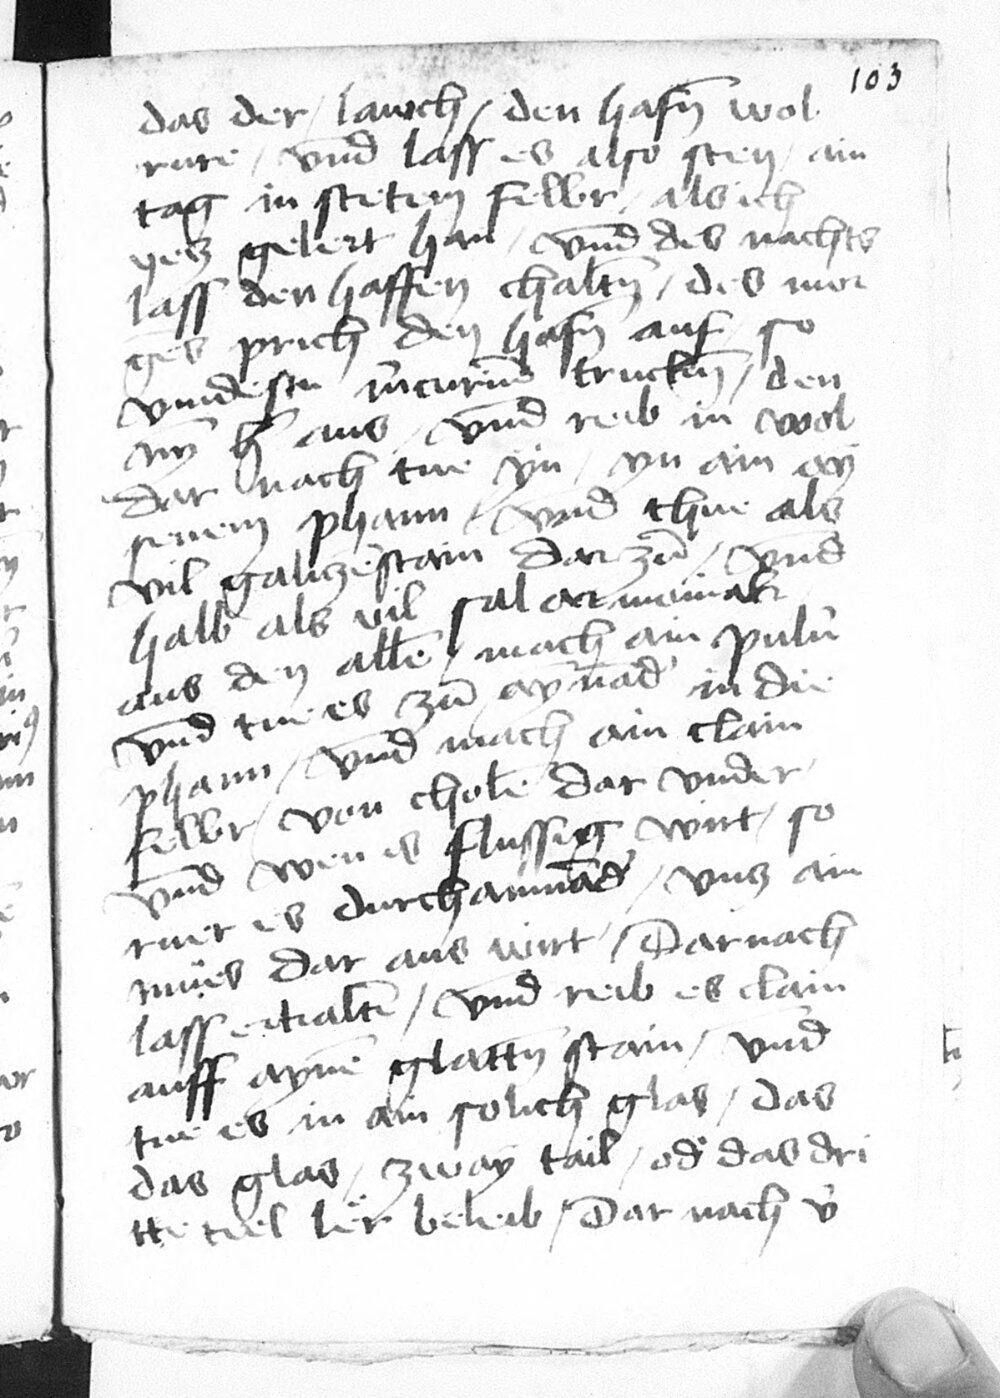 103
das der / lauch / den hafñ wol
rure / vnd lass es also sten / ain
tag in stetem fewr / als ich
yez gelert han / vnd des nachts
lass den haffen chaltñ / des mor
gēs prich den hafñ auf / so
vindestu m̄curiū truckñ / den
nym h̄ aus / vnd reib in wol
dar nach tue yn / yn ain ay
senem phann / vnd thue als
vil galiczestain dar zů / vnd
halb als vil sal armoniak
aus den allē / mach ain puluͤ
vnd tue es zu aynād̕ in die
phann / vnd mach ain clain
fewr / von cholē dar vnder /
vnd wen es flussig wirt / so
ruer es durchainnād̕ / vnz ain
mües dar aus wirt / Darnach
lass erchaltē / vnd reib es clain
auff aynē glattñ stain / vnd
tue es in ain solich glas / das
das glas / zway tail / od̕ das dri
tte teel lër beleib / Dar nach v̕